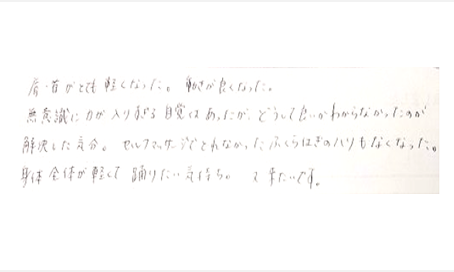 肩・首がとても軽くなった。動きが良くなった。
無意識に力が入りすぎる自覚はあったが、どうして良いかわからなかったのが
解決した気分。セルフマッサージでとれなかったふくらはぎのハリもなくなった。
身体全体が軽くて踊りたい気持ち。又来たいです。